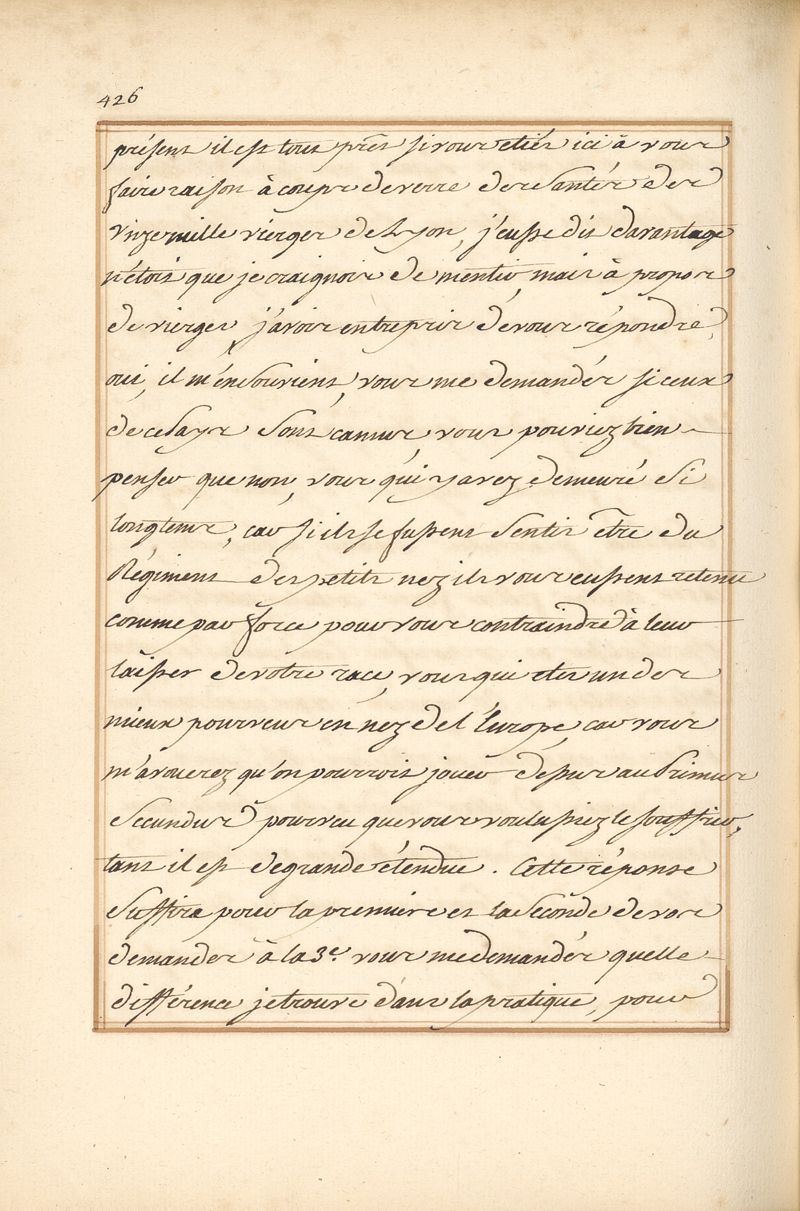 426
présent il est tout prêt si vous etiés ici à vous
faire raison à coups de verre des santés des
vnze mille vierges de Lyon, j'eusse dit davantage
n'étoit que je craignois de mentir, mais à propos
de vierges, j'avois entrepris de vous répondre,
oui, il m'en souvient, vous me demandés si ceux
de ce Pays sont camus, vous pouriez bien
penser que non, vous qui y avez demeuré si
longtems, car s'ils se fussent sentis être du
Régiment des petits nez ils vous eussent retenu
comme par force pour vous contraindre à leur
laisser de votre race, vous qui etes un des
mieux pourveus en nez de l'Europe, car vous
m'avouerez qu'on pourroit jouer dessus au Primus
Secundus pourveu que vous voulussiez le souffrir,
tant il est de grande étendue. Cette réponse
suffira pour la première et la seconde de vos
demandes à la 3e. vous me demandés quelle
différence je trouve dans la pratique, pour